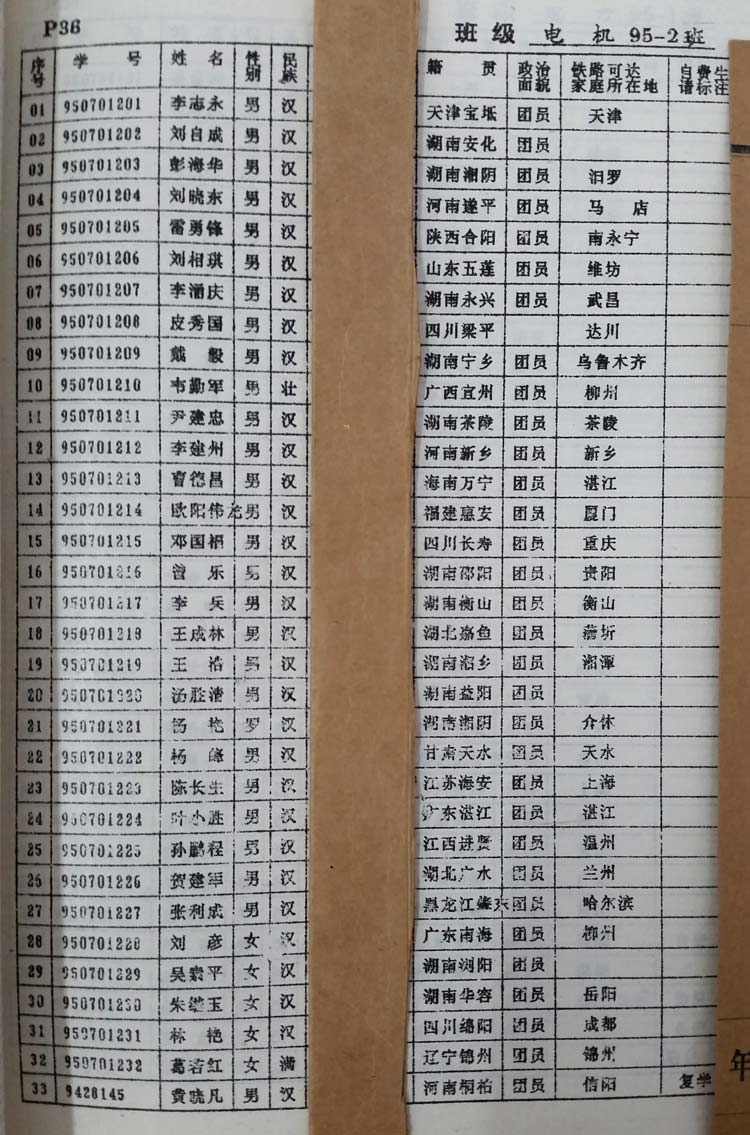 P36 班级 电机 95-2班
序号 学号 姓名 性别 民族 籍贯 政治面貌 铁路可达家庭所在地 自费生请标注
01 950701201 李志永 男 汉 天津宝坻 团员 天津
02 950701202 刘自成 男 汉 湖南安化 团员
03 950701203 彭海华 男 汉 湖南湘阴 团员 汨罗
04 950701204 刘晓东 男 汉 河南遂平 团员 马店
05 950701205 雷勇锋 男 汉 陕西合阳 团员 南永宁
06 950701206 刘相琪 男 汉 山东五莲 团员 维坊
07 950701207 李湑庆 男 汉 湖南永兴 团员 武昌
08 950701208 皮秀国 男 汉 四川梁平 达川
09 950701209 戴毅 男 汉 湖南宁乡 团员 乌鲁木齐
10 950701210 韦勤军 男 壮 广西宜州 团员 柳州
11 950701211 尹建忠 男 汉 湖南茶陵 团员 茶陵
12 950701212 李建州 男 汉 河南新乡 团员 新乡
13 950701213 曹德昌 男 汉 海南万宁 团员 湛江
14 950701214 欧阳伟龙 男 汉 福建惠安 团员 厦门
15 950701215 邓国栖 男 汉 四川长寿 团员 重庆
16 950701216 曾乐 男 汉 湖南邵阳 团员 贵阳
17 950701217 李兵 男 汉 湖南衡山 团员 衡山
18 950701218 王成林 男 汉 湖北嘉鱼 团员 蒲圻
19 950701219 王浩 男 汉 湖南湘乡 团员 湘潭
20 950701220 汤胜清 男 汉 湖南益阳 团员
21 950701221 杨艳 汉 湖南湘阴 团员 介休
22 950701222 杨峰 男 汉 甘肃天水 团员 天水
23 950701223 陈长生 男 汉 江苏海安 团员 上海
24 950701224 叶小胜 男 汉 广东湛江 团员 湛江
25 950701225 孙鹏程 男 汉 江西进贤 团员 温州
26 950701226 贺建军 男 汉 湖北广水 团员 兰州
27 950701227 张利成 男 汉 黑龙江 团员 哈尔滨
28 950701228 刘彦 女 汉 广东南海 团员 柳州
29 950701229 吴素平 女 汉 湖南浏阳 团员
30 950701230 朱继玉 女 汉 湖南华容 团员 岳阳
31 950701231 林艳 女 汉 四川绵阳 团员 成都
32 950701232 葛若红 女 满 辽宁锦州 团员 锦州
33 9428145 黄晓凡 男 汉 河南桐柏 团员 信阳 复学
年